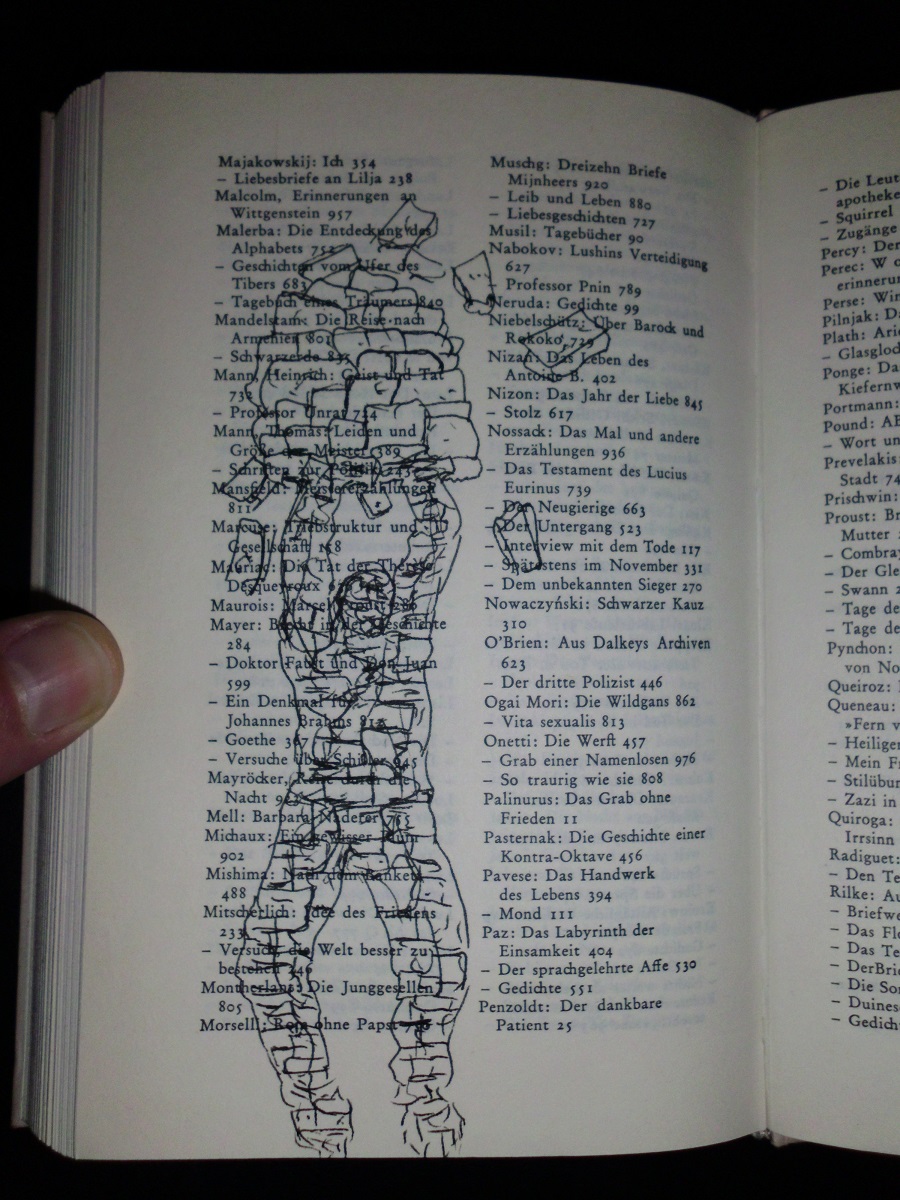 Majakowskij: Ich 354
– Liebesbriefe an Lilja 238
Malcolm, Erinnerungen an
Wittgenstein 957
Malerba: Die Entdeckung des
Alphabets 752
– Geschichten vom Ufer des
Tibers 683
– Tagebuch eines Träumers 840
Mandelstam: Die Reise nach
Armenien 801
– Schwarzerde
Mann, Heinrich: Geist und Tat
732
– Professor Unrat 724
Mann, Thomas: Leiden und
Größe der Meister 389
– Schriften zur Politik 243
Mansfield: Meistererzählungen
811
Marcuse: Triebstruktur und
Gesellschaft 158
Mauriac: Die Tat der Thérèse
Desqueyroux
Maurois: Marcel Proust 286
Mayer: Brecht in der Geschichte
284
– Doktor Faust und Don Juan
599
– Ein Denkmal für
Johannes Brahms 812
– Goethe 367
– Versuche über Schiller 945
Mayröcker, Reise durch die
Nacht
Mell: Barbara Naderer 755
Michaux: Ein gewisser Plume
902
Mishima: Nach dem Bankett
488
Mitscherlich: Idee des Friedens
233
– Versuch, die Welt besser zu
bestehen 246
Montherlant: Die Junggesellen
805
Morselli: Rom ohne Papst
Muschg: Dreizehn Briefe
Mijnheers 920
– Leib und Leben 880
– Liebesgeschichten 727
Musil: Tagebücher 90
Nabokov: Lushins Verteidigung
627
– Professor Pnin 789
Neruda: Gedichte 99
Niebelschütz: Über Barock und
Rokoko, 729
Nizan: Das Leben des
Antoine B. 402
Nizon: Das Jahr der Liebe 845
– Stolz 617
Nossack: Das Mal und andere
Erzählungen 936
– Das Testament des Lucius
Eurinus 739
– Der Neugierige 663
– Der Untergang 523
– Interview mit dem Tode 117
– Spätestens im November 331
– Dem unbekannten Sieger 270
Nowaczyński: Schwarzer Kauz
310
O'Brien: Aus Dalkeys Archiven
623
– Der dritte Polizist 446
Ogai Mori: Die Wildgans 862
– Vita sexualis 813
Onetti: Die Werft 457
– Grab einer Namenlosen 976
– So traurig wie sie 808
Palinurus: Das Grab ohne
Frieden 11
Pasternak: Die Geschichte einer
Kontra-Oktave 456
Pavese: Das Handwerk
des Lebens 394
– Mond 111
Paz: Das Labyrinth der
Einsamkeit 404
– Der sprachgelehrte Affe 530
– Gedichte 551
Penzoldt: Der dankbare
Patient 25
– Die Leut
apotheke
– Squirrel
– Zugänge
Percy: Der
Perec: W o
erinneru
Perse: Win
Pilnjak: D
Plath: Arie
– Glasgloc
Ponge: Da
Kiefernw
Portmann:
Pound: AB
– Wort un
Prevelakis:
Stadt 74
Prischwin:
Proust: Br
Mutter
– Combray
– Der Gle
– Swann
– Tage de
– Tage de
Pynchon:
von No
Queiroz:
Queneau:
»Fern v
– Heiligen
– Mein Fr
– Stilübun
– Zazi in
Quiroga:
Irrsinn
Radiguet:
– Den Te
Rilke: Au
– Briefwe
– Das Flo
– Das Te
– DerBrie
– Die Son
– Duines
– Gedicht